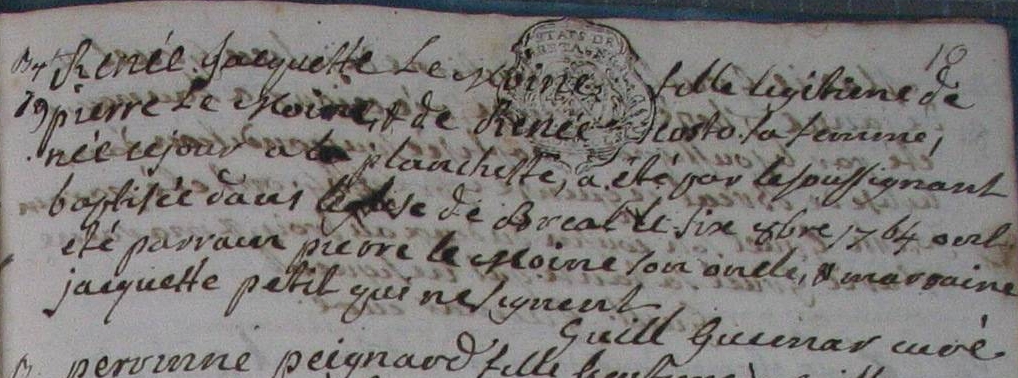 ETATS DE
BRETAGNE
18
Bt Renée Jacquette Le Moine fille legitime de
79 pierre Le Moine, & de Renée costo sa femme,
née cejour a la planchette, a été par le soussignant
baptisée dans l'eglise de Breal le six 8bre 1764 ont
été parrain pierre le Moine son oncle, & marraine
jacquette petit qui ne signent
Guill Guimar curé
B. perrinne peignard fille